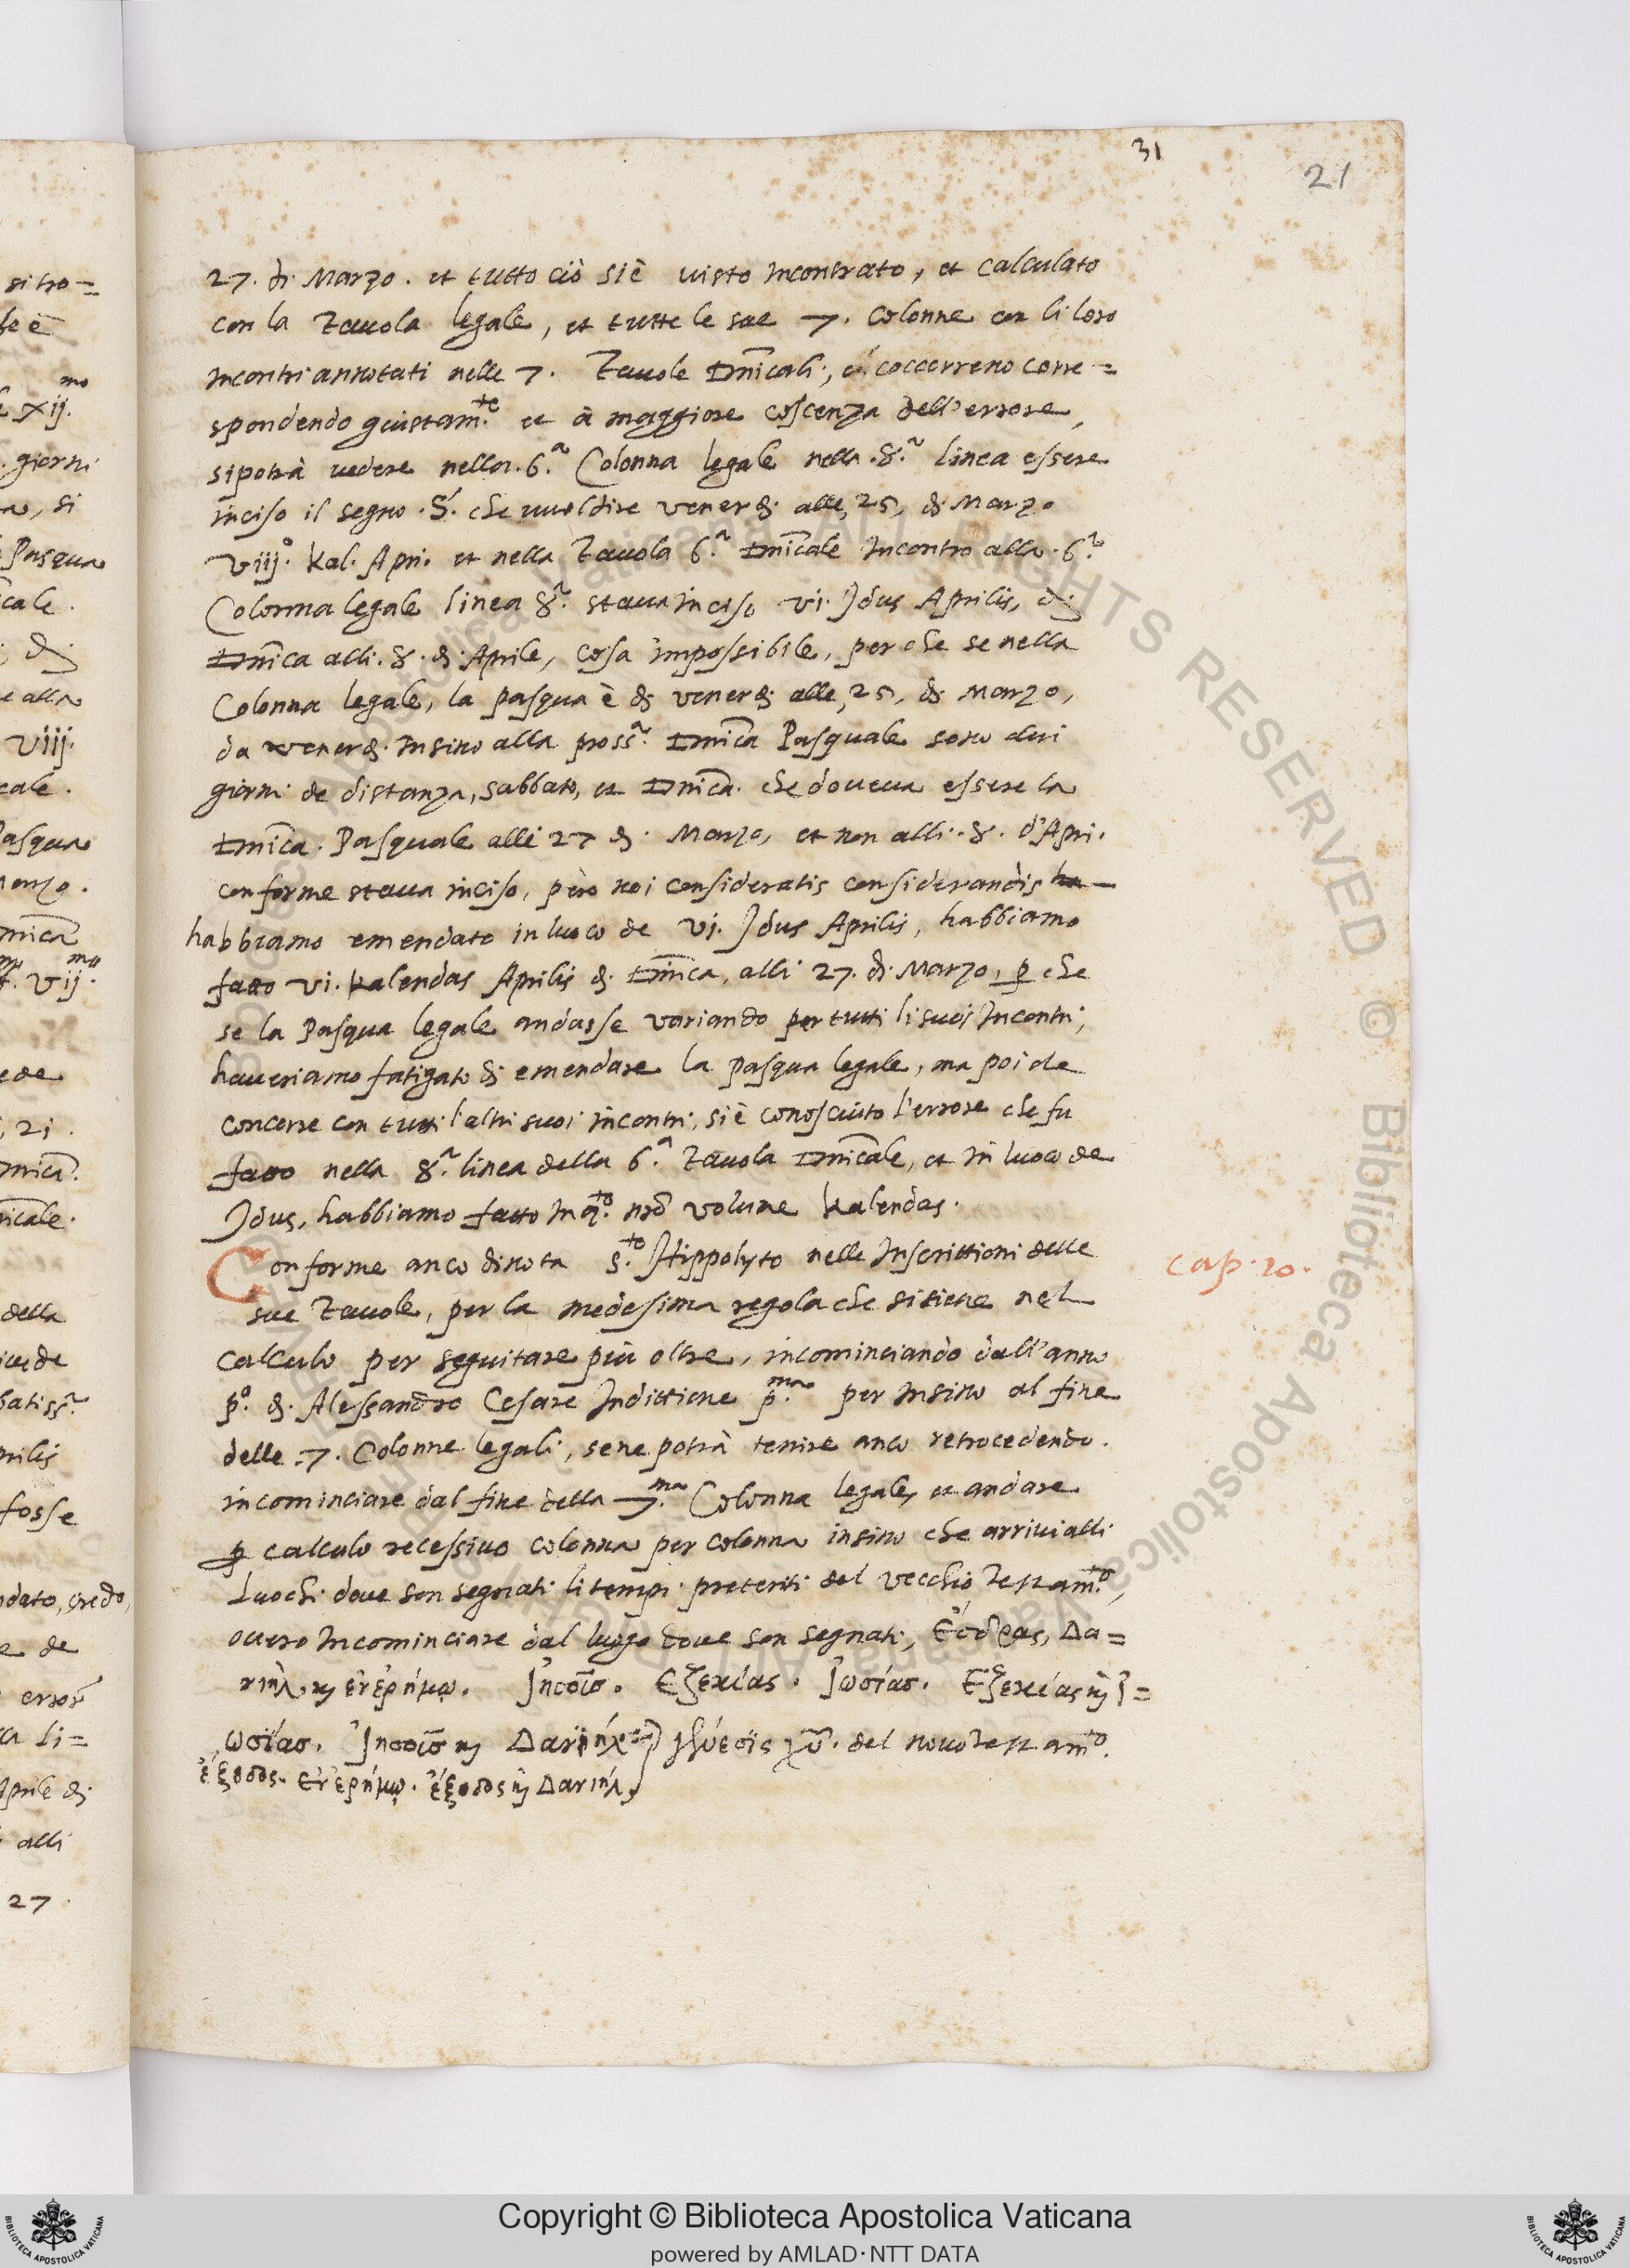 31
21
27. di Marzo. et tutto ciò si è uisto incontrato, et calculato
con la Tauola legale, et tutte le sue 7. Colonne con li loro
incontri annotati nelle 7. Tauole Dn̄icali, coccorreno corre=
spondendo giustam.te et à maggiore coscenza dell'errore,
si potrà uedere nella .6.a Colonna legale nella .8.a linea essere
inciso il segno .S. che uuol dire venerdi alle, 25, di Marzo
viij.o Kal. Apri. et nella Tauola 6.a Dn̄icale incontro alla .6.a
Colonna legale linea 8.a staua inciso vi. Idus Aprilis, di
Dn̄ica alli .8. di Aprile, cosa impossibile, perche se nella
Colonna legale, la pasqua è di venerdi alle, 25, di Marzo,
da venerdi insino alla pross.a Dn̄ica Pasquale sono dui
giorni de distanza, sabbato, et Dn̄ica. che doueua essere la
Dn̄ica. Pasquale alli 27 di Marzo, et non alli .8. d'Apri.
conforme staua inciso, però noi consideratis considerandis ha
habbiamo emendato in luoco de vi. Idus Aprilis, habbiamo
fatto vi. Kalendas Aprilis di Dn̄ica, alli 27. di Marzo, p̱ che
se la Pasqua legale andasse variando per tutti li suoi incontri,
haueriamo fatigato di emendare la pasqua legale, ma poi che
concorre con tutti l'altri suoi incontri, si è conosciuto l'errore che fu
fatto nella 8.a linea della 6.a Tauola Dn̄icale, et in luoco de
Idus, habbiamo fatto in q.to nr̄o volume Kalendas.
Conforme anco dinota S.to Hippolyto nelle Inscrittioni delle
cap. 20.
sue Tauole, per la medesima regola che si tiene nel
calculo per seguitare più oltre, incominciando dall'anno
p.o di Alessandro Cesare Indittione p.ma per insino al fine
delle .7. Colonne legali, se ne potrà tenire anco retrocedendo.
incominciare dal fine della 7.ma Colonna legale, et andare
p̱ calculo recessiuo colonna per colonna insino che arriui alli
Luochi doue son segnati li tempi preteriti del vecchio Testam.to,
ouero incominciare dal luogo doue son segnati, Ἐσδρας, Δα=
νιὴλ ϗ ἐν ἐρήμῳ. Ἰησοῦσ. Εζεκίας. Ἰωσίασ. Εζεκίας ϗ Ἰ=
ωσίασ. Ἰησοῦσ ϗ Δανιήλ γένεσις χῡ. del nouo Testam.to.
ἔξοδος. ἐν ἐρήμῳ. ἔξοδος ϗ Δανιήλ,
sitro=
xij.mo
giorni
si
Pasqua
cale.
di
e alla
viij.
cale.
Pasqua
Marzo.
mica
vij.mo
ede
21.
nicale.
della
prilis
fosse
ndato, credo,
e de
li=
Aprile di
alli
27
Copyright © Biblioteca Apostolica Vaticana
powered by AMLAD·NTT DATA